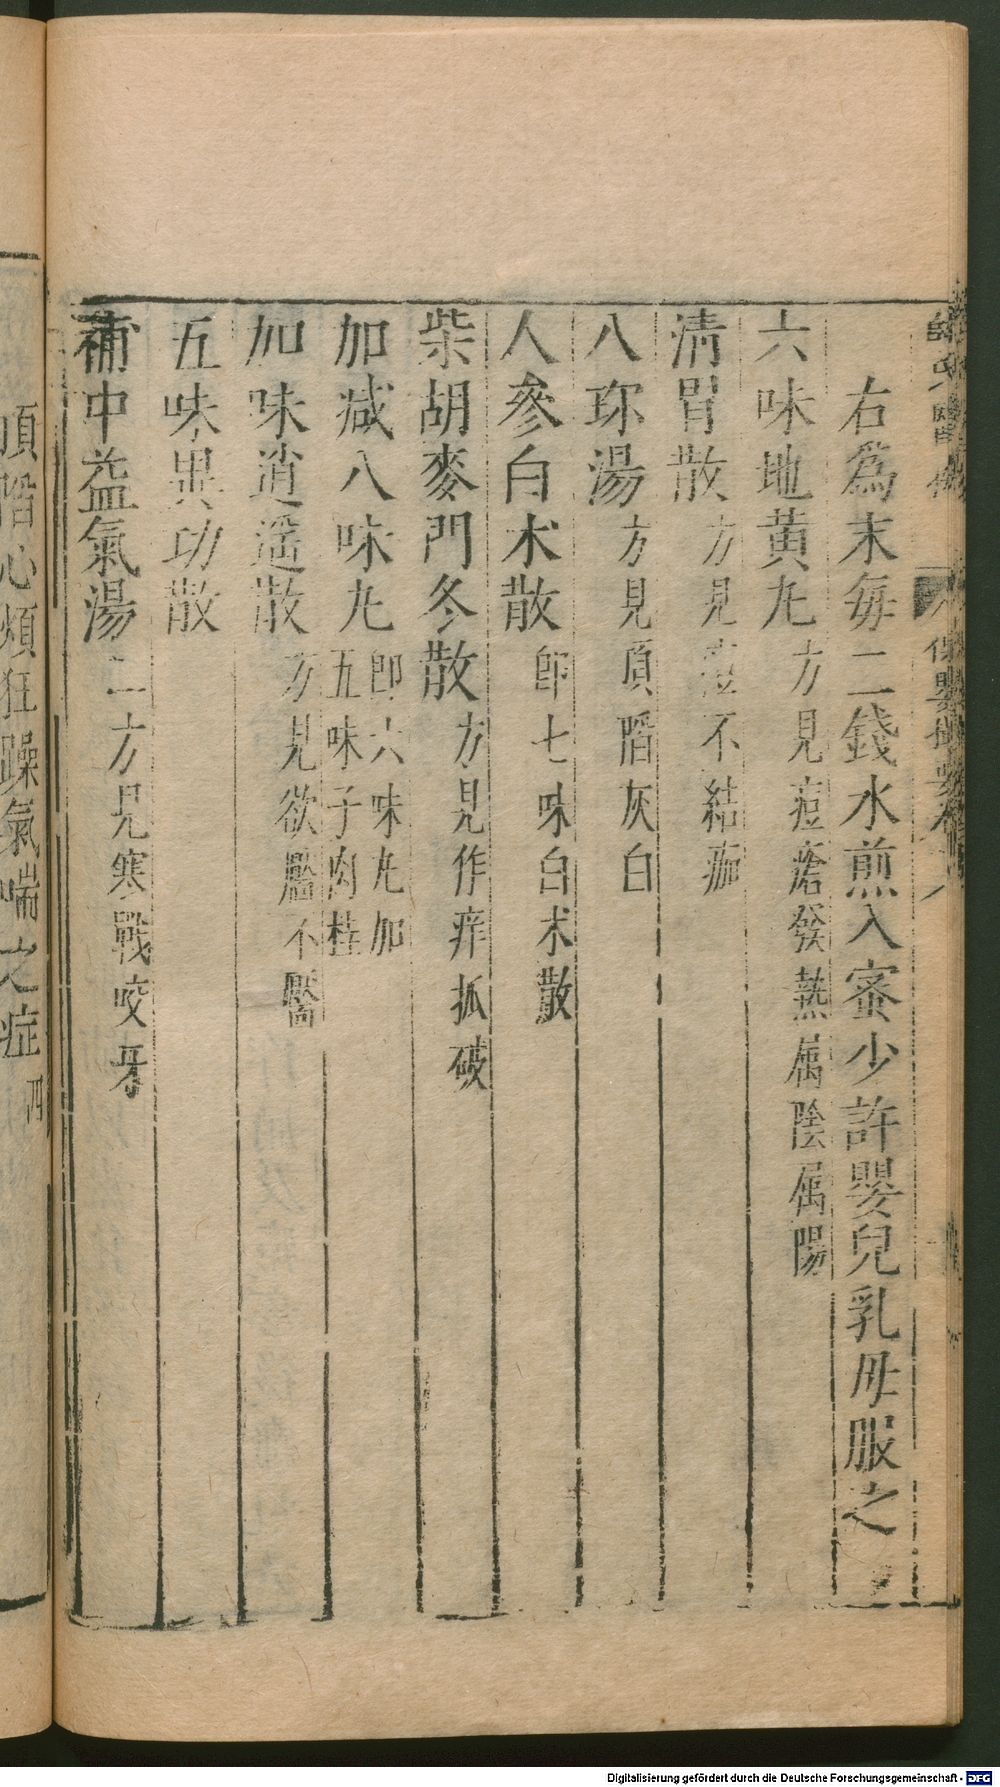 薛氏醫
保嬰撮要卷
右為末每二錢水煎入蜜少許嬰兒乳母服之
六味地黃丸方見痘瘡發熱屬陰屬陽
清胃散方見痘不結痂
八珎湯方見頂陷灰白
人參白朮散即七味白朮散
柴胡麥門冬散方見作痒抓破
加减八味丸即六味丸加五味子肉桂
加味逍遥散方見欲靨不靨
五味異功散
補中益氣湯二方見寒戰咬牙
頂陷心煩狂躁氣喘之症四
Digitalisierung gefördert durch die Deutsche Forschungsgemeinschaft - DFG